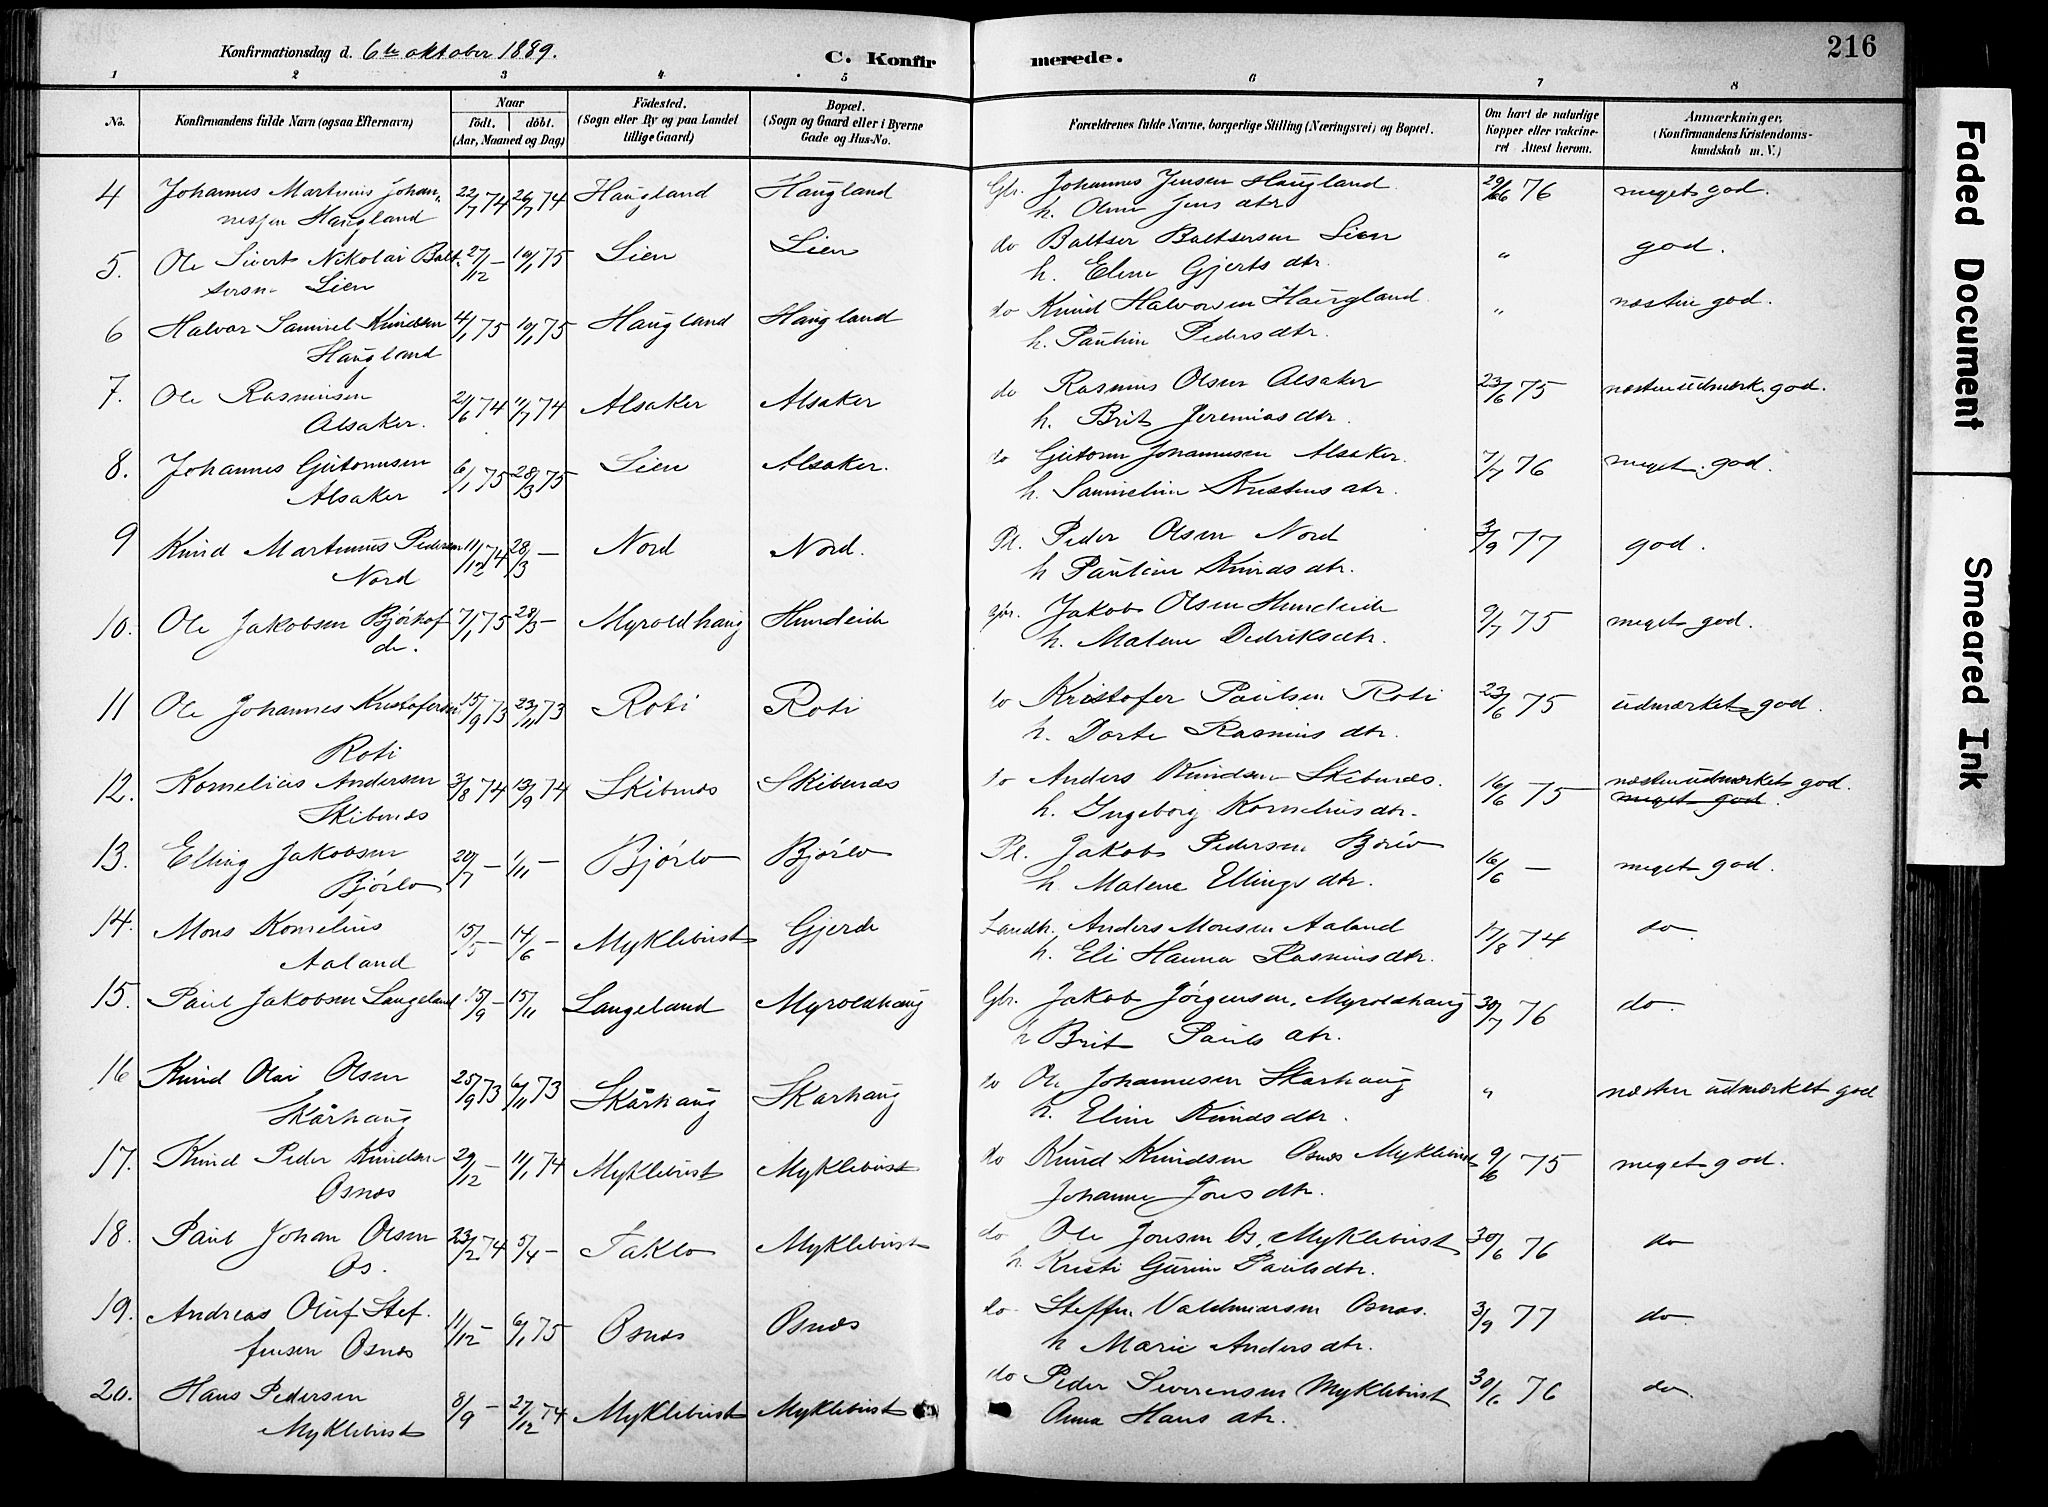 Konfirmationsdag d. 6te oktober 1889.
C. Konfir
merede.
216
1 2 3 4 5 6 7 8
No.
Konfirmandens fulde Navn (ogsaa Efternavn)
Naar
födt. döbt.
(Aar, Maaned og Dag)
Födested.
(Sogn eller By og paa Landet
tillige Gaard)
Bopæl.
(Sogn og Gaard eller i Byerne
Gade og Hus-No.
Forældrenes fulde Navne, borgerlige Stilling (Næringsvei) og Bopæl.
Om havt de naturlige
Kopper eller vakcine-
ret Attest herom.
Anmærkninger.
(Konfirmandens Kristendoms-
kundskab m. V.)
4 Johannes Martinus Johan- 22/7 74 26/7 74 Haugland Haugland Gbr. Johannes Jensen Haugland 76 meget god.
nessen Haugland h. Oline Jens dtr
5. Ole Sivert Nikolai Balt- 27/12 - 10/1 75 Lien Lien do Baltser Baltsersen Lien " god.
sersn Lien h. Eline Gjerts dtr.
6 Halvar Samuel Knudsen 4/1 75 10/1 75 Haugland Haugland do Knud Halvorsen Haugland " næsten god.
Haugland h. Pauline Peders dtr.
7. Ole Rasmussen 74 11/7 74 Alsaker Alsaker do Rasmus Olsen Alsaker 23/6 75 næsten udmærk. god.
Alsaker. h. Brit Jeremias dtr.
8. Johannes Guttormsen 6/1 75 28/3 75 Lien Alsaker. do Guttorm Johannesen Alsaker. 7/7 76 meget god.
Alsaker h. Samueline Kristens dtr.
9 Knud Martinus Pedersen 11/12 74 28/3 - Nord Nord. Pl. Peder Olsen Nord 3/9 77 god.
Nord h Pauline Knuds dtr.
10. Ole Jakobsen Bjørkof 7/1 75 28/3 - Myroldhaug Hundeide Gbr. Jakob Olsen Hundeide 9/7 75 meget god.
de. h. Malene Dedriksdtr.
11 Ole Johannes Kristofersen 15/9 73 23/11 73 Roti Roti do Kristofer Paulsen Roti 23/6 75 udmærket god.
Roti h. Dorte Rasmus dtr.
12. Kornelius Andersen 3/8 74 13/9 74 Skibenes Skibenæs do Anders Knudsen Skibenæs. 16/6 75 næsten udmærket god.
Skibenæs h. Ingeborg Kornelius dtr. meget god.
13. Elling Jakobsen 20/7 - 1/11 - Bjørlo Bjørlo Pl. Jakob Pedersen Bjørlo 16/6 - meget god.
Bjørlo h Malene Ellings dtr.
14. Mons Kornelius 15/5 - 14/6 - Myklebust Gjerde Landh. Anders Monsen Aaland 17/8 74 do
Aaland h. Eli Hanna Rasmusdtr.
15. Paul Jakobsen Langeland 15/9 - 15/11 Langeland Myroldhaug Gbr. Jakob Jørgensen, Myroldhaug 30/7 76 do.
h Brit Pauls dtr.
16 Knud Olai Olsen 25/9 73 6/11 73 Skårhaug Skarhaug do Ole Johannesen Skarhaug " næsten udmærket god
Skårhaug h. Eline Knuds dtr.
17. Knud Peder Knudsen 29/12 - 11/1 74 Myklebust Myklebust do Knud Knudsen Osnæs Myklebust 9/6 75 meget god.
Osnæs Johanne Jons dtr.
18. Paul Johan Olsen 23/2 74 5/4 - Taklo Myklebust do Ole Jonsen Os, Myklebust 30/6 76 do
Os. h. Kristi Gurine Paulsdtr.
19. Andreas Oluf Stef- 11/12 - 6/1 75 Osnæs Osnæs do Steffen Valdemarsen Osnæs. 3/9 77 do
fensen Osnæs h Marie Anders dtr.
20. Hans Pedersen 8/9 - 27/12 74 Myklebust Myklebust do Peder Severensen Myklebust 30/6 76 do.
Myklebust Anna Hans dtr.
Faded Document
Smeared Ink